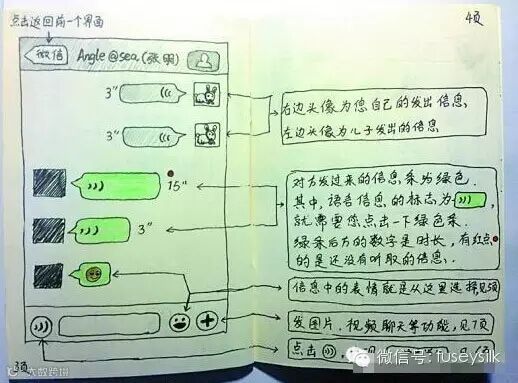 点击返回前一个界面
4页
微信 Angle@sea(张明)
3"
3"
右边头像为您自己的发出信息,
左边头像为儿子发出的信息
对方发过来的信息条为绿色.
其中,语音信息的标志为 ,
就需要您点击一下绿色条.
绿条后方的数字是时长,有红点
的是还没有听取的信息.
15"
3"
信息中的表情就是从这里选择见
发图片,视频聊天等功能,见7页
点击
3页
微信号: fuseysilk
大数跨境